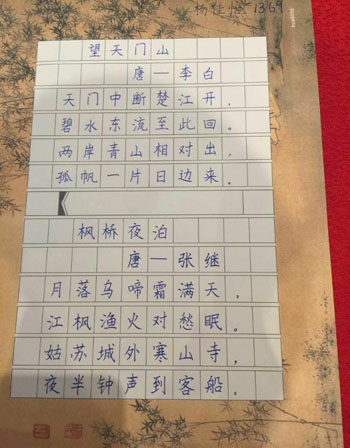 1369
望天门山
唐一李白
天门中断楚江开，
碧水东流至此回。
两岸青山相对出，
孤帆一片日边来。
枫桥夜泊
唐一张继
月落乌啼霜满天，
江枫渔火对愁眠。
姑苏城外寒山寺，
夜半钟声到客船。